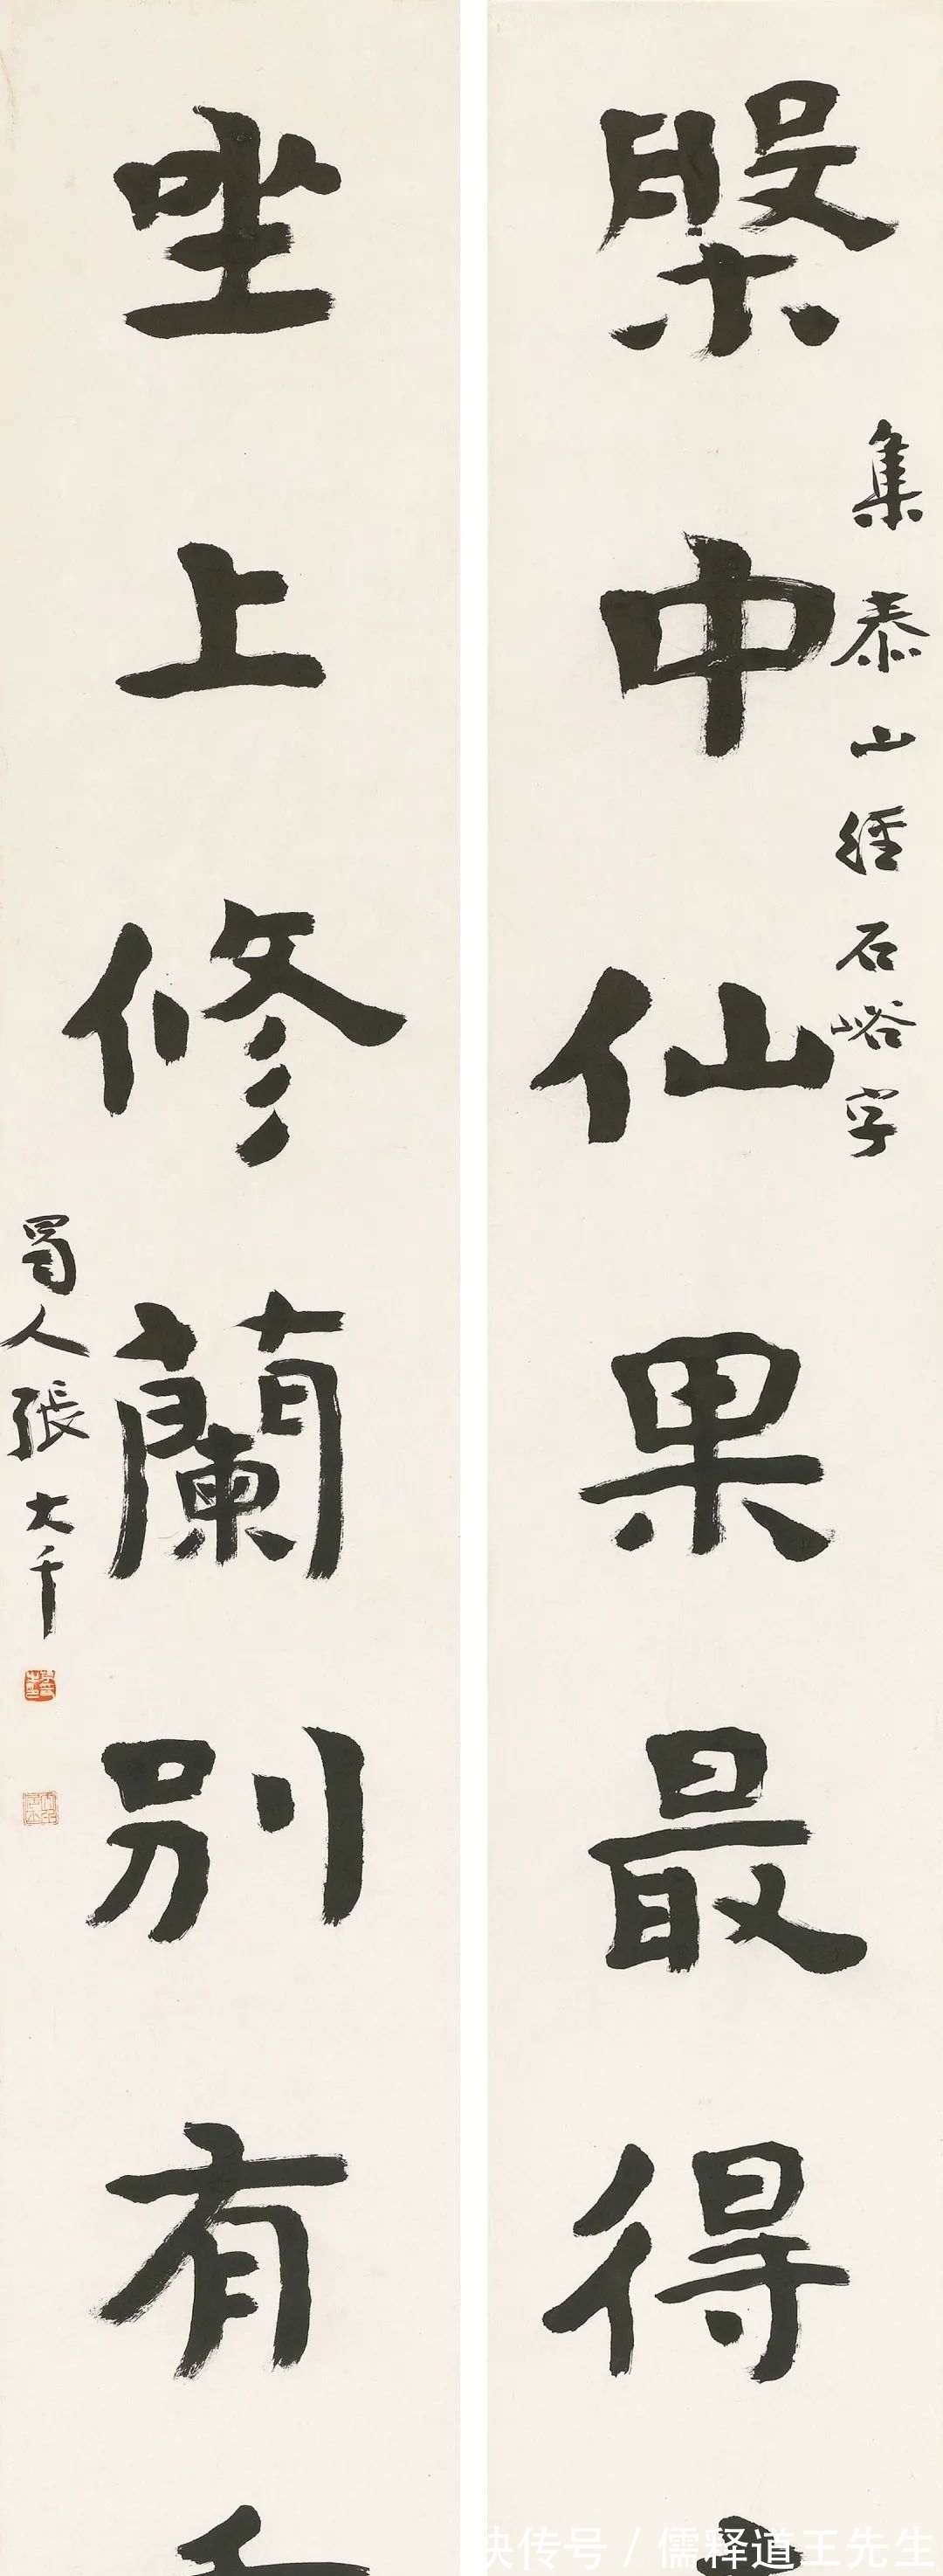 集泰山經石峪字
槃中仙果最得
坐上修蘭別有
蜀人張大千
快传号 / 儒释道王先生